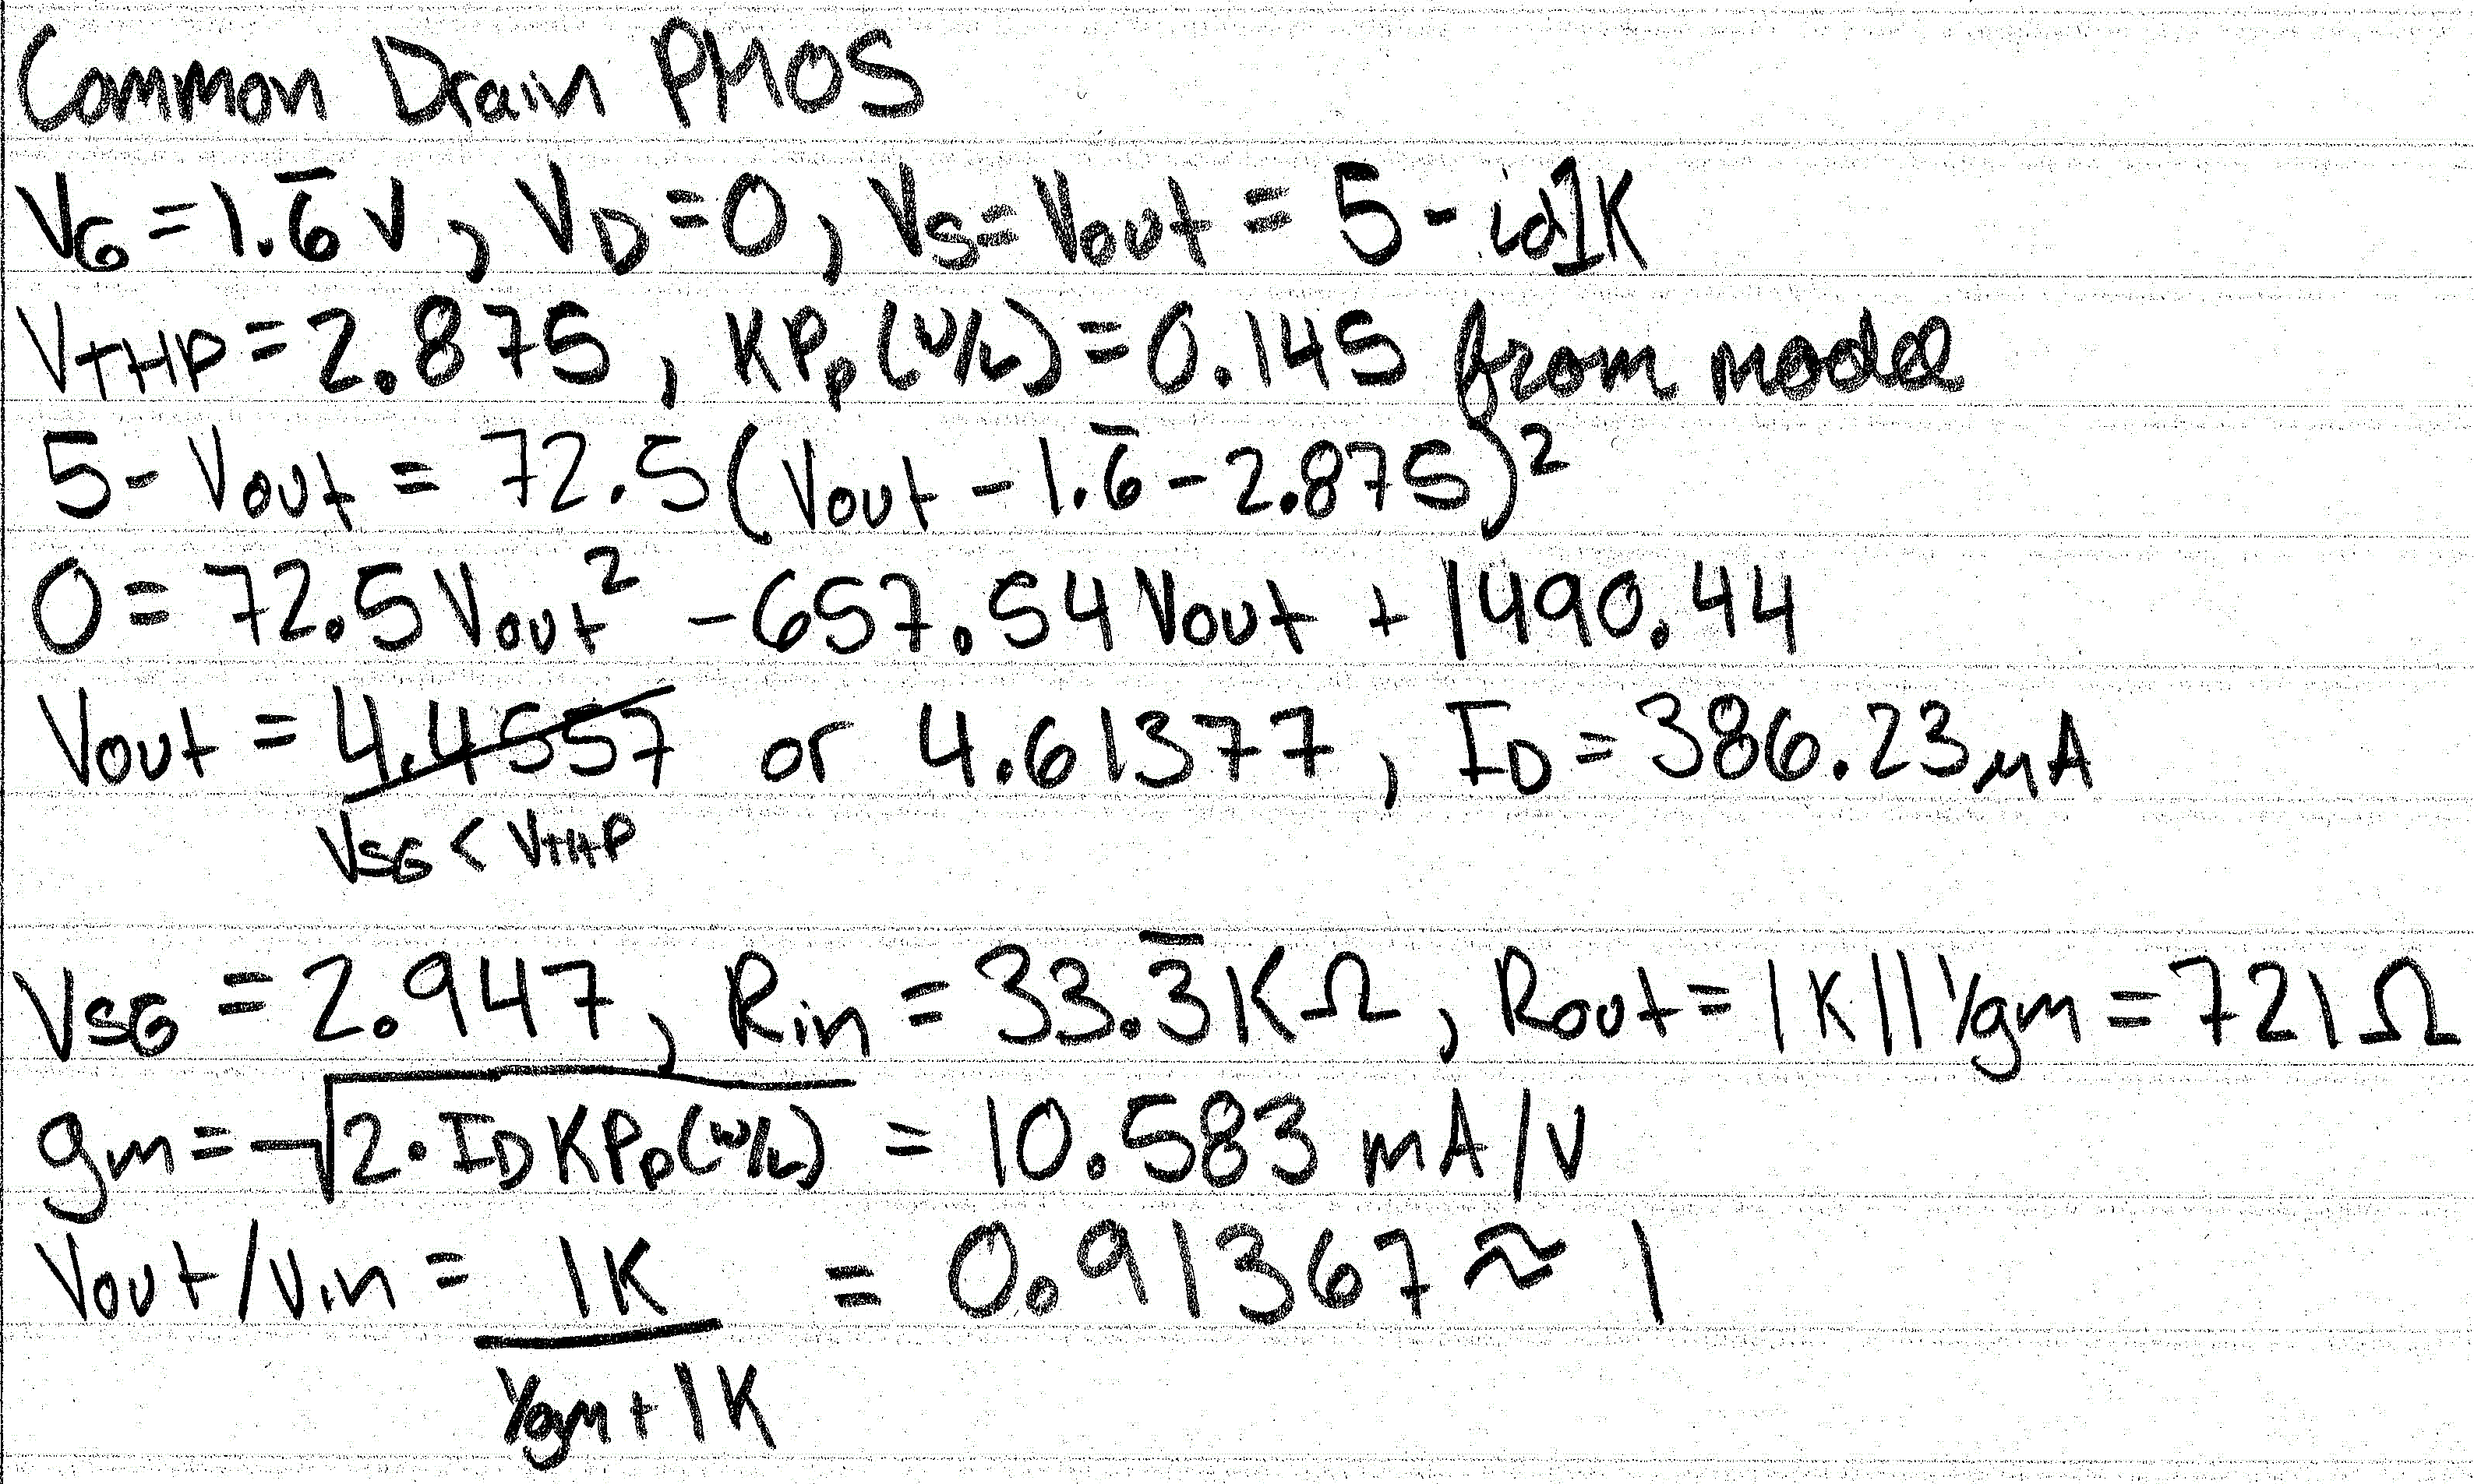 Common Drain PMOS
VG = 1.6̅ V, VD = 0, VS = Vout = 5 - id1K
VTHP = 2.875, KPp(W/L) = 0.145 from model
5 - Vout = 72.5(Vout - 1.6̅ - 2.875)²
0 = 72.5 Vout² - 657.54 Vout + 1490.44
Vout = 4.4557 or 4.61377, ID = 386.23 μA
VSG < VTHP
VSG = 2.947, Rin = 33.3̅ KΩ, Rout = 1K || 1/gm = 721 Ω
gm = √2·ID KPp(W/L) = 10.583 mA/V
Vout/Vin = 1K / (1/gm + 1K) = 0.91367 ≈ 1